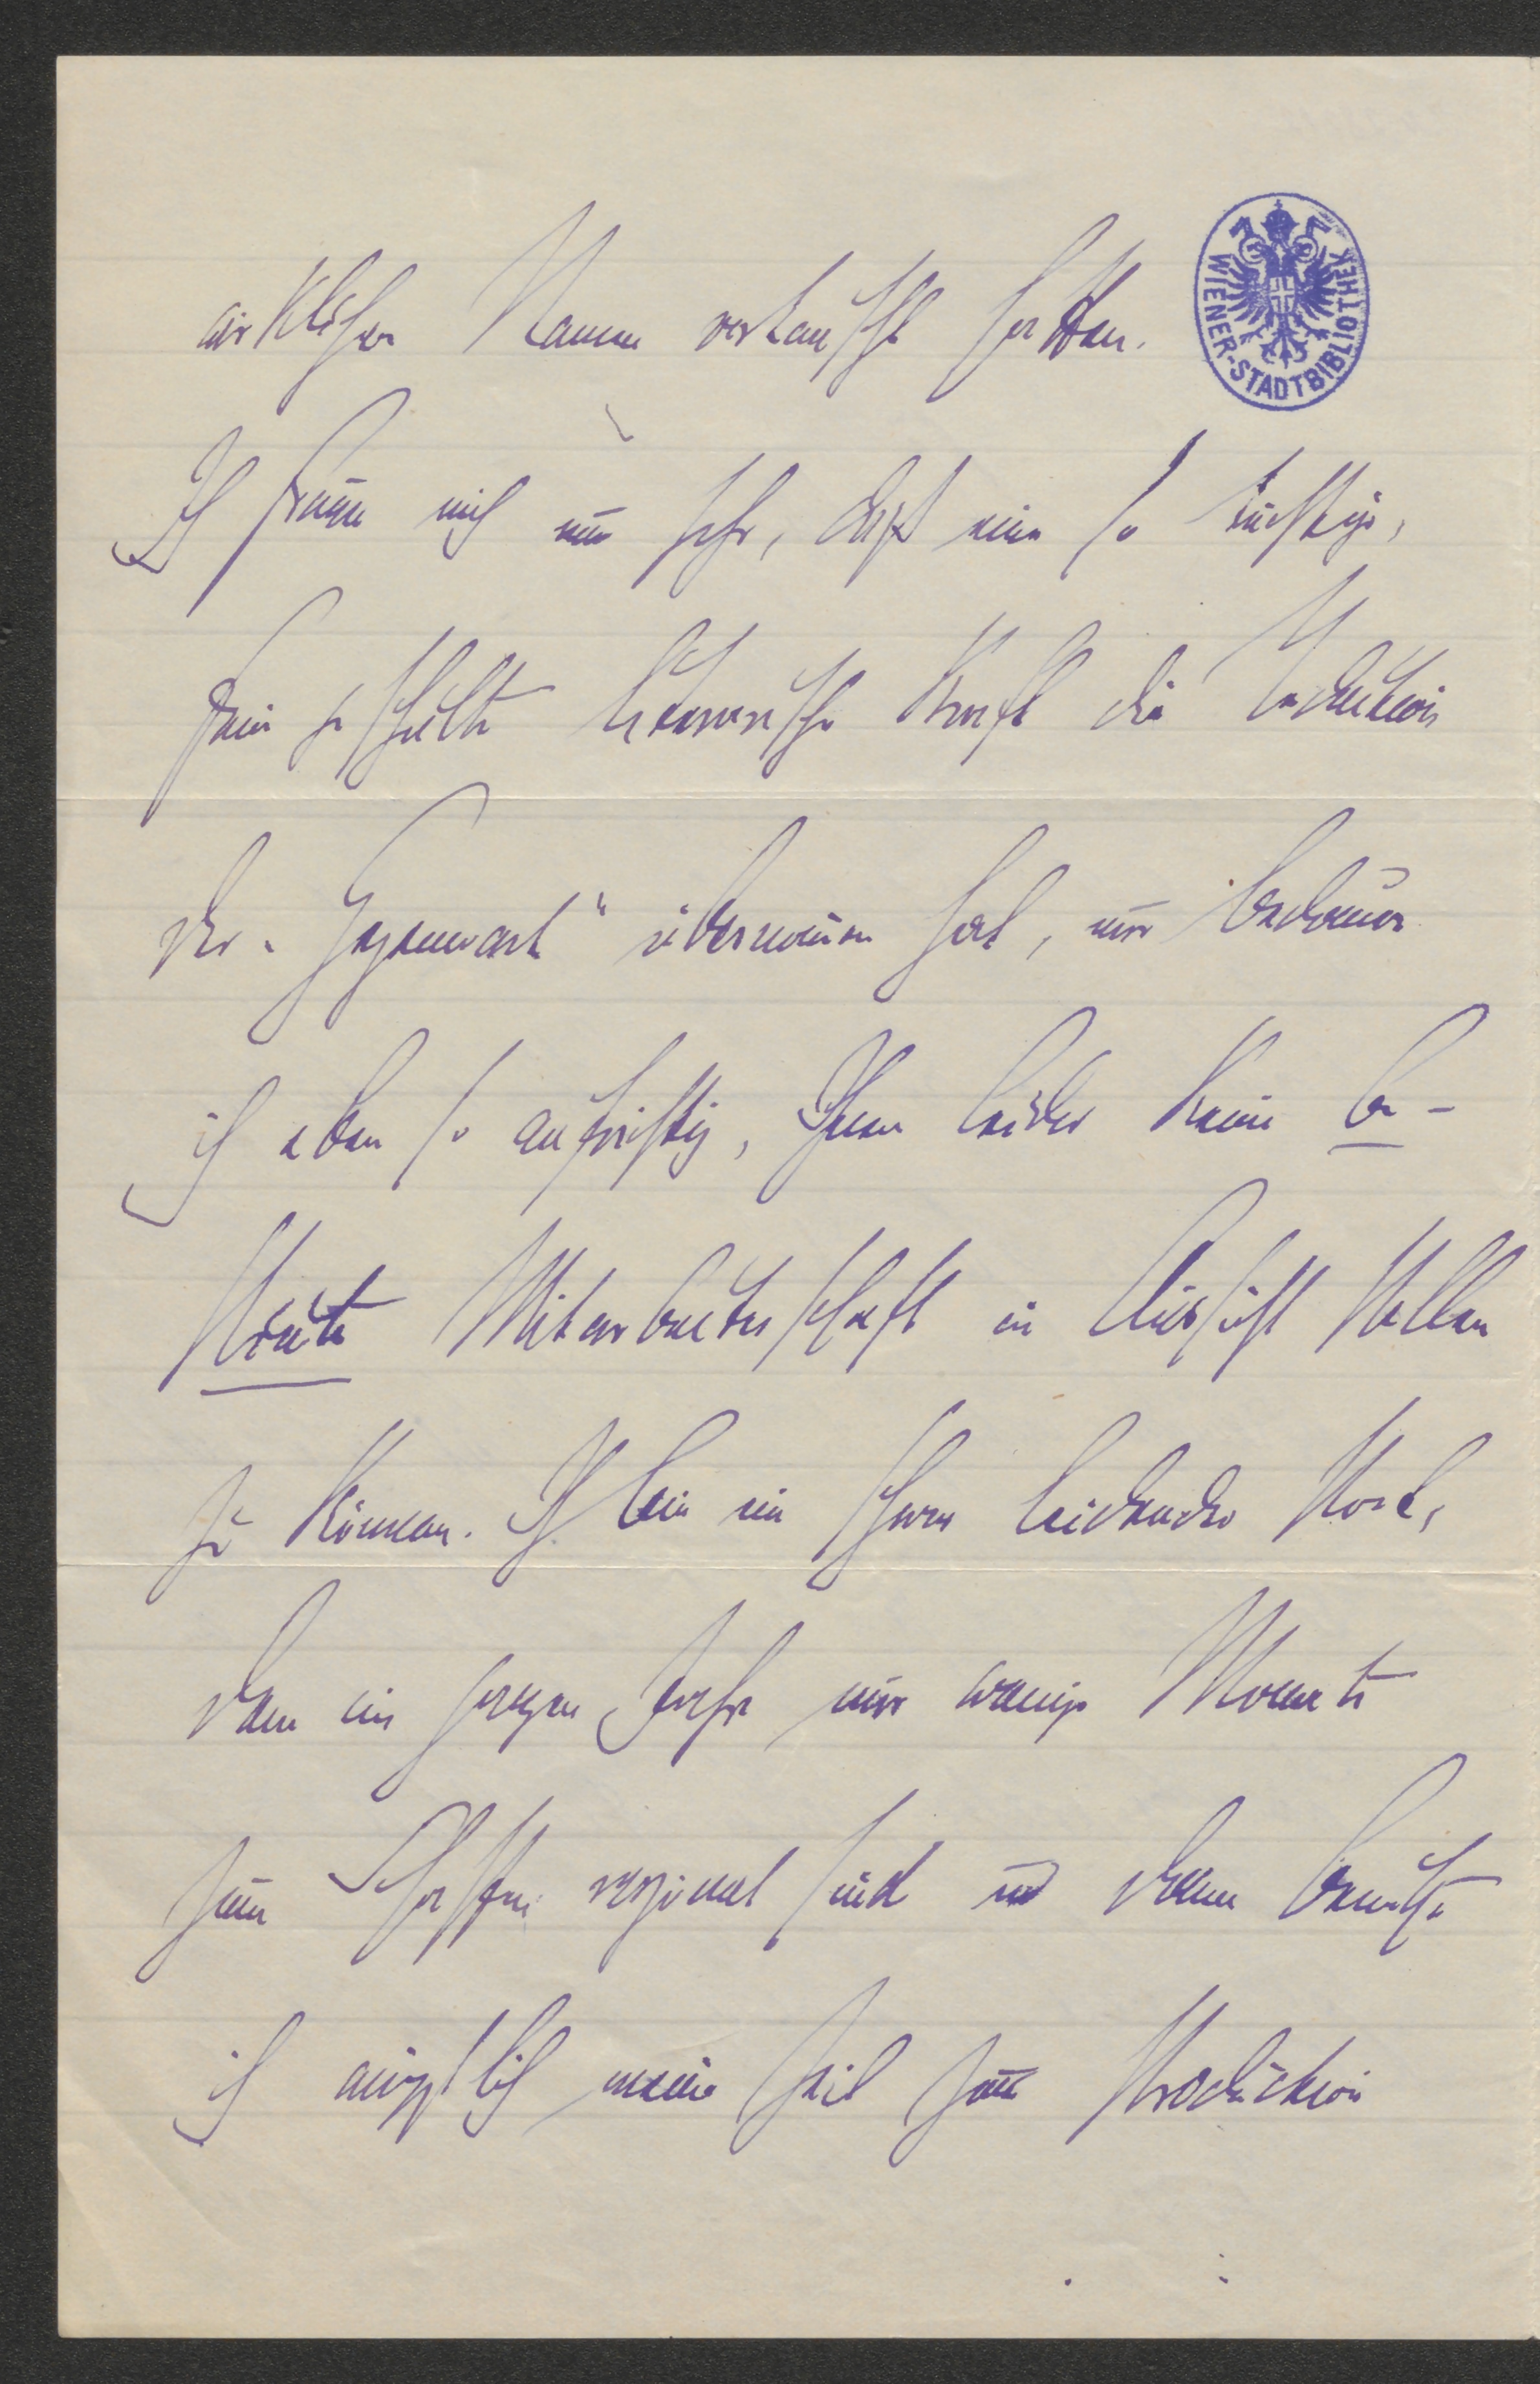 wirklichen Namen vertauscht hatten.
WIENER-STADTBIBLIOTHEK
Ich freue mich nun sehr, daß eine so tüchtige,
fein geschulte literarische Kraft die Redaktion
der „Gegenwart“ übernommen hat, nur bedaure
ich eben so aufrichtig, Ihnen leider keine be-
stimmte Mitarbeiterschaft in Aussicht stellen
zu können. Ich bin ein schwer leidender Poet,
dem im ganzen Jahre nur wenige Monate
zum Schaffen vergönnt sind und dann benutze
ich ängstlich meine Zeit zur Produktion